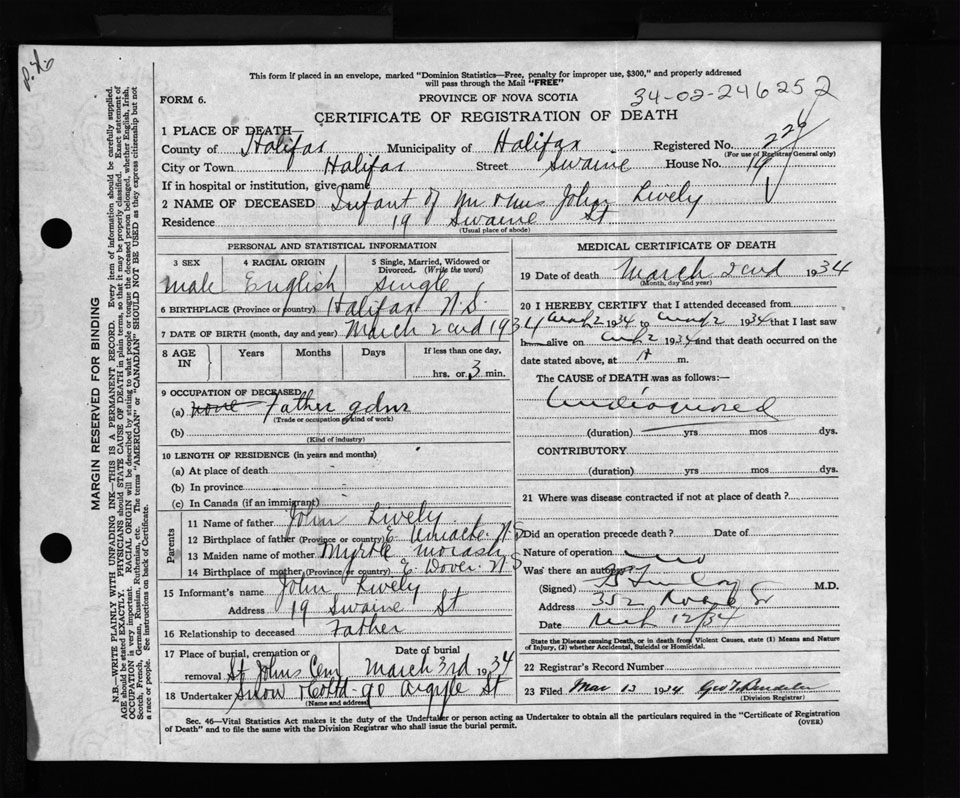 This form if placed in an envelope, marked "Dominion Statistics—Free, penalty for improper use, $300," and properly addressed
will pass through the Mail "FREE"
FORM 6.
PROVINCE OF NOVA SCOTIA
34-02-246252
CERTIFICATE OF REGISTRATION OF DEATH
1 PLACE OF DEATH—
County of Halifax Municipality of Halifax Registered No. 224
(For use of Registrar General only)
City or Town Halifax Street Swaine House No. 19
If in hospital or institution, give name
2 NAME OF DECEASED Infant of Mr & Mrs John Lively
Residence 19 Swaine St
(Usual place of abode)
PERSONAL AND STATISTICAL INFORMATION
3 SEX 4 RACIAL ORIGIN 5 Single, Married, Widowed or Divorced. (Write the word)
male English single
6 BIRTHPLACE (Province or country) Halifax N.S.
7 DATE OF BIRTH (month, day and year) March 2cnd 1934
8 AGE IN Years Months Days If less than one day,
hrs. or 3 min.
9 OCCUPATION OF DECEASED
(a) none Father
(Trade or occupation or kind of work)
(b)
(Kind of industry)
10 LENGTH OF RESIDENCE (in years and months)
(a) At place of death
(b) In province
(c) In Canada (if an immigrant)
Parents
11 Name of father John Lively
12 Birthplace of father (Province or country) E. Uniacke N.S
13 Maiden name of mother Myrtle Morash
14 Birthplace of mother (Province or country) E. Dover N S
15 Informant's name John Lively
Address 19 Swaine St
16 Relationship to deceased Father
17 Place of burial, cremation or removal St Johns Cem Date of burial March 3rd 1934
18 Undertaker Snow & Co Ltd 90 Argyle St
(Name and address)
MEDICAL CERTIFICATE OF DEATH
19 Date of death March 2cnd 1934
(Month, day and year)
20 I HEREBY CERTIFY that I attended deceased from
2 1934 to 2 1934 that I last saw
h alive on 2 1934 and that death occurred on the
date stated above, at m.
The CAUSE of DEATH was as follows:—
(duration) yrs mos dys.
CONTRIBUTORY
(duration) yrs mos dys.
21 Where was disease contracted if not at place of death?
Did an operation precede death? Date of
Nature of operation
Was there an autopsy? no
(Signed) M.D.
Address 352 St
Date 12/34
State the Disease causing Death, or in death from Violent Causes, state (1) Means and Nature
of Injury, (2) whether Accidental, Suicidal or Homicidal.
22 Registrar's Record Number
23 Filed Mar 13 1934 Geo
(Division Registrar)
Sec. 46—Vital Statistics Act makes it the duty of the Undertaker or person acting as Undertaker to obtain all the particulars required in the "Certificate of Registration
of Death" and to file the same with the Division Registrar who shall issue the burial permit.
(OVER)
MARGIN RESERVED FOR BINDING
N.B.—WRITE PLAINLY WITH UNFADING INK—THIS IS A PERMANENT RECORD. Every item of information should be carefully supplied.
AGE should be stated EXACTLY. PHYSICIANS should STATE CAUSE OF DEATH in plain terms, so that it may be properly classified. Exact statement of
OCCUPATION is very important. RACIAL ORIGIN will be described by stating to what people or tongue the deceased person belonged, whether English, Irish,
Scotch, French, German, Russian, Ruthenian, etc. The terms "AMERICAN" or "CANADIAN" SHOULD NOT BE USED as they express citizenship but not
a race or people. See instructions on back of Certificate.